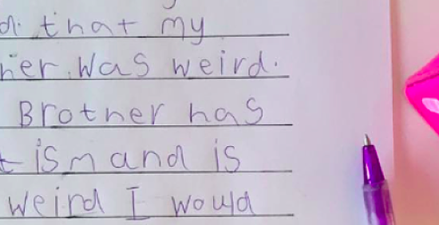 that my
was weird.
Brother has
ism and is
weird I would